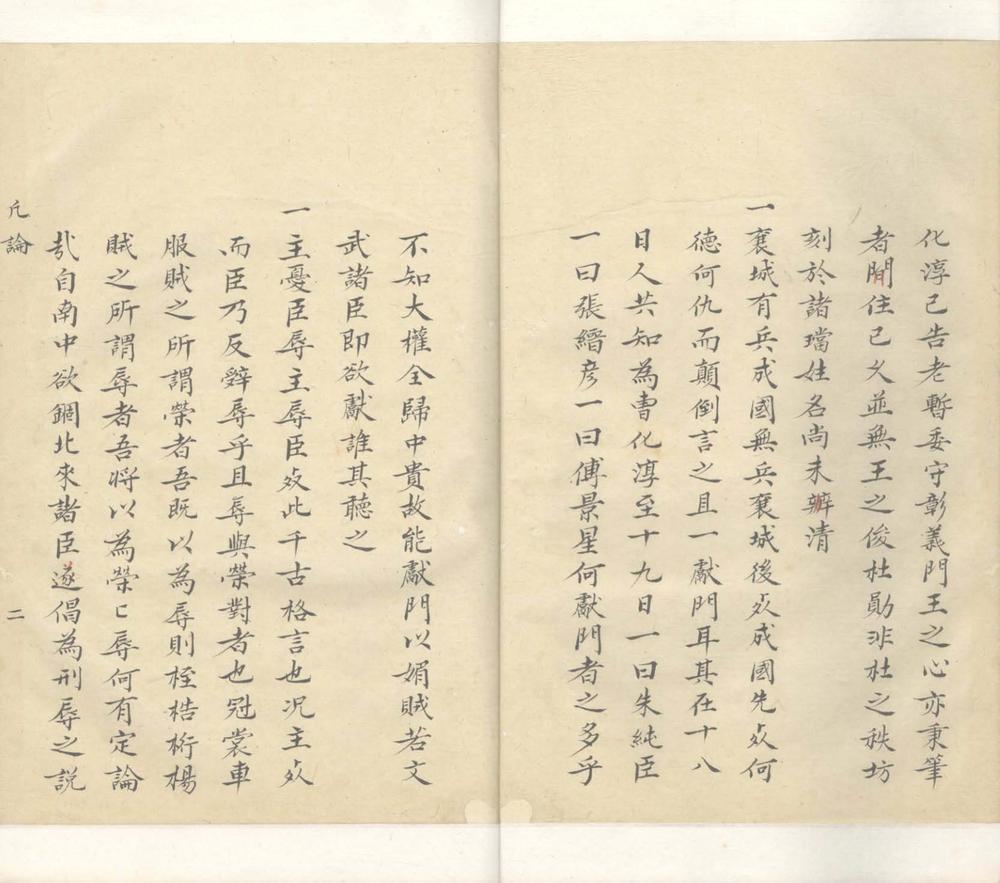 化淳已告老暫委守彰義門王之心亦秉筆
者閒住已久並無王之俊杜勛非杜之秩坊
刻於諸璫姓名尚未辨清
一襄城有兵成國無兵襄城後死成國先死何
德何仇而顛倒言之且一獻門耳其在十八
日人共知為曹化淳至十九日一曰朱純臣
一曰張縉彦一曰傅景星何獻門者之多乎
不知大權全歸中貴故能獻門以媚賊若文
武諸臣即欲獻誰其聽之
一主憂臣辱主辱臣死此千古格言也况主死
而臣乃反辭辱乎且辱與榮對者也冠裳車
服賊之所謂榮者吾既以為辱則桎梏桁楊
賊之所謂辱者吾將以為榮匕辱何有定論
㢤自南中欲錮北來諸臣遂倡為刑辱之説
凡論
二